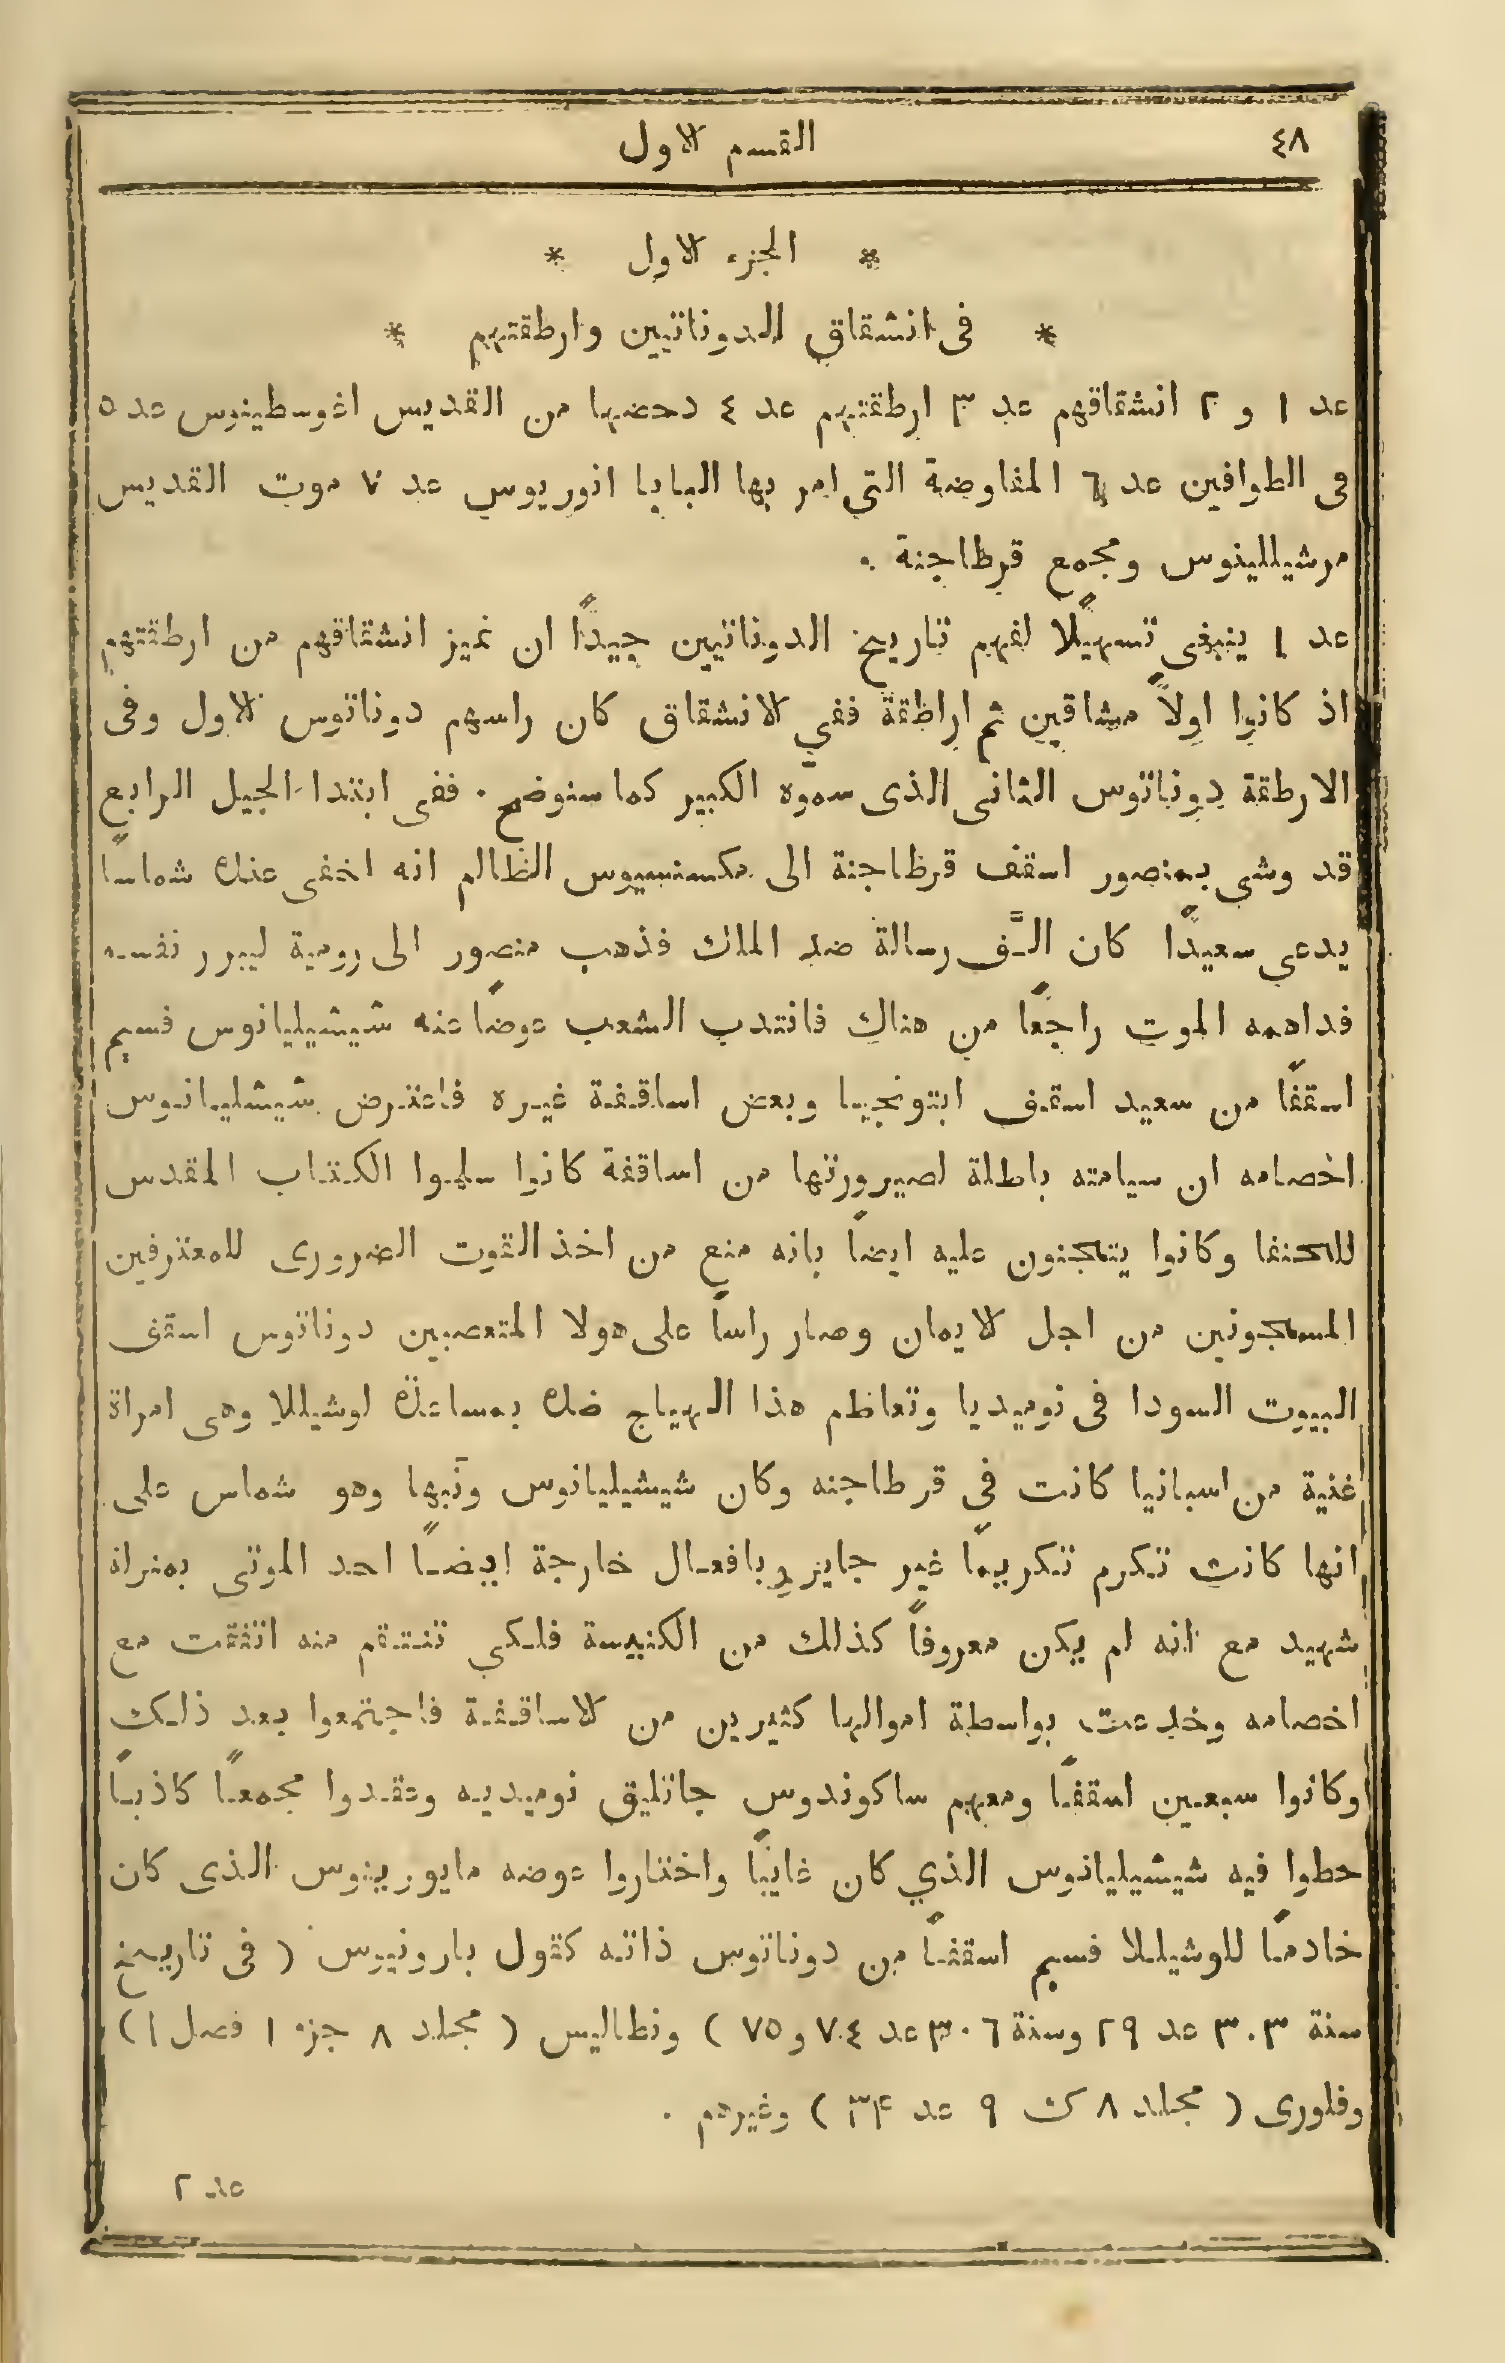 ٤٨
القسم الاول
* الجزء الاول *
* فى انشقاق الدوناتيين وارطقتهم *
عد ١ و ٢ انشقاقهم عد ٣ ارطقتهم عد ٤ دحضها من القديس اغوسطينوس عد ٥
فى الطوافين عد ٦ المفاوضة التي امر بها البابا انوريوس عد ٧ موت القديس
مرشيللينوس ومجمع قرطاجنة .
عد ١ ينبغى تسهيلًا لفهم تاريخ الدوناتيين جيدًا ان نميز انشقاقهم من ارطقتهم
اذ كانوا اولاً مشاقين ثم اراطقة ففي الانشقاق كان راسهم دوناتوس الاول وفى
الارطقة دوناتوس الثانى الذى سموه الكبير كما سنوضح . ففى ابتدا الجيل الرابع
قد وشى بمنصور اسقف قرطاجنة الى مكسنسيوس الظالم انه اخفى عنده شماسًا
يدعى سعيدًا كان الَّف رسالة ضد الملك فذهب منصور الى رومية ليبرر نفسه
فداهمه الموت راجعًا من هناك فانتدب الشعب عوضًا عنه شيشيليانوس فسيم
اسقفًا من سعيد اسقف ابتونجيا وبعض اساقفة غيره فاعترض شيشليانوس
اخصامه ان سيامته باطلة لصيرورتها من اساقفة كانوا سلموا الكتاب المقدس
للحنفا وكانوا يتجنون عليه ايضاً بانه منع من اخذ القوت الضرورى للمعترفين
المسجونين من اجل الايمان وصار راساً على هولا المتعصبين دوناتوس اسقف
البيوت السودا فى نوميديا وتعاظم هذا الهياج ضده بمساعدة لوشيللا وهى امراة
غنية من اسبانيا كانت في قرطاجنه وكان شيشيليانوس ونَّبها وهو شماس على
انها كانت تكرم تكريمًا غير جايز وبافعال خارجة ايضًا احد الموتى بمنزلة
شهيد مع انه لم يكن معروفاً كذلك من الكنيسة فلكي تنتقم منه اتفقت مع
اخصامه وخدعت بواسطة اموالها كثيرين من الاساقفة فاجتمعوا بعد ذلك
وكانوا سبعين اسقفًا ومعهم ساكوندوس جاثليق نوميديه وعقدوا مجمعًا كاذبًا
حطوا فيه شيشيليانوس الذي كان غايبًا واختاروا عوضه مايورينوس الذى كان
خادمًا للوشيللا فسيم اسقفًا من دوناتوس ذاته كقول بارونيوس ( فى تاريخ
سنة ٣٠٣ عد ٢٩ وسنة ٣٠٦ عد ٧٤ و ٧٥ ) ونطاليس ( مجلد ٨ جزء ١ فصل ١ )
وفلورى ( مجلد ٨ ك ٩ عد ) وغيرهم .
عد ٢